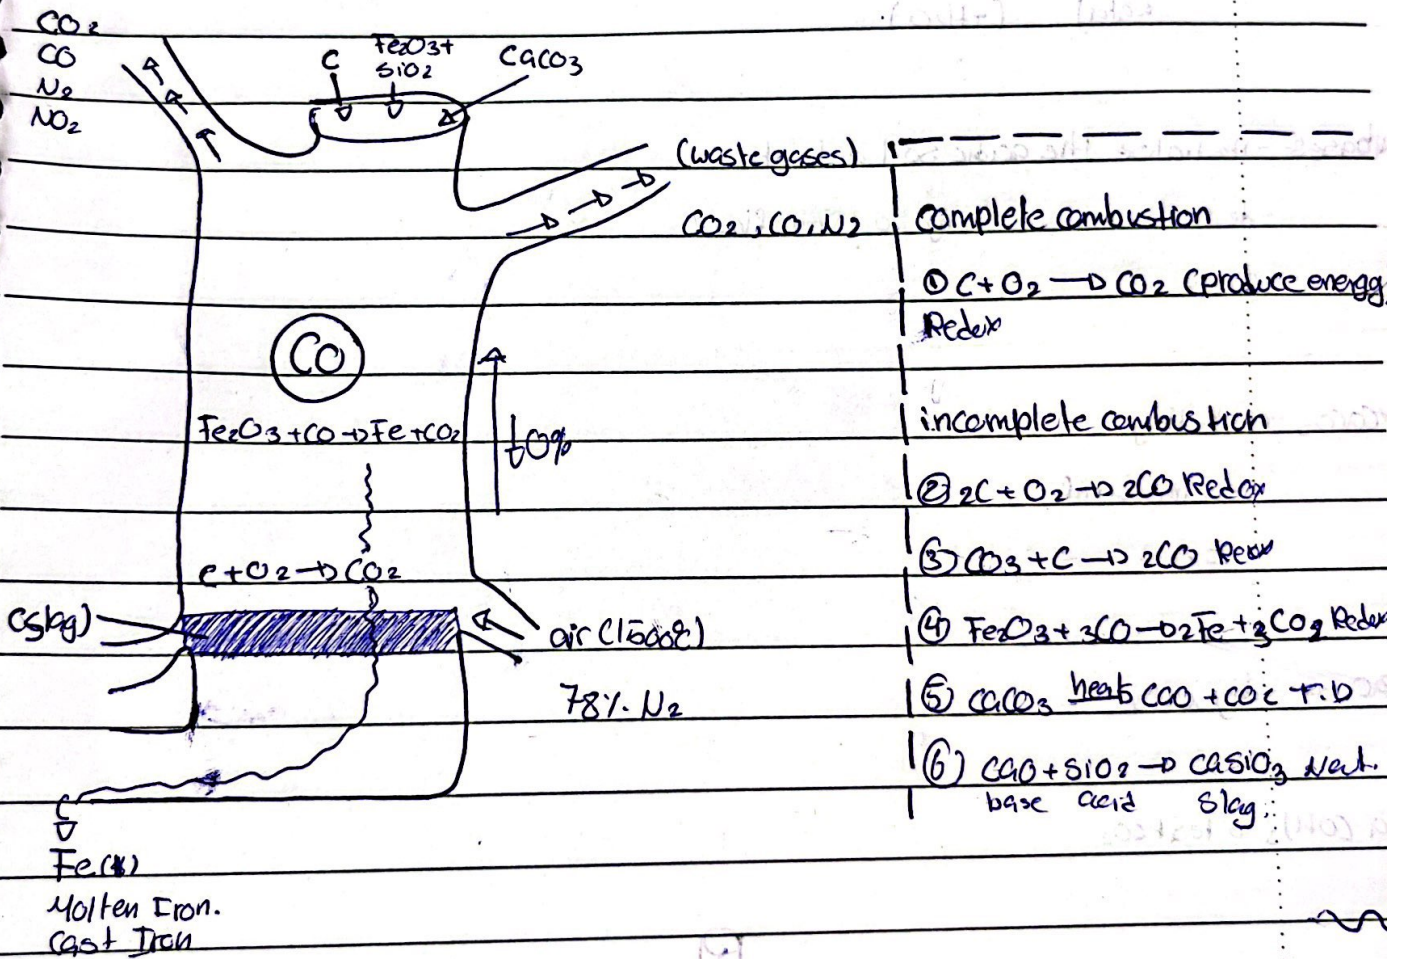 CO2
CO
N2
NO2
C
Fe2O3+
SiO2
CaCO3
(waste gases)
CO2, CO, N2
CO
Fe2O3+CO→Fe+CO2
C+O2→CO2
(slag)
air (1500°C)
78%. N2
Fe(l)
Molten Iron.
Cast Iron
complete combustion
① C+O2 → CO2 (produce energy
Redox
incomplete combustion
② 2C+O2→2CO Redox
③ CO3+C→2CO Redox
④ Fe2O3+3CO→2Fe+3CO2 Redox
⑤ CaCO3 heats CaO+CO2 T.D
⑥ CaO+SiO2→CaSiO3 Neut.
base acid slag.